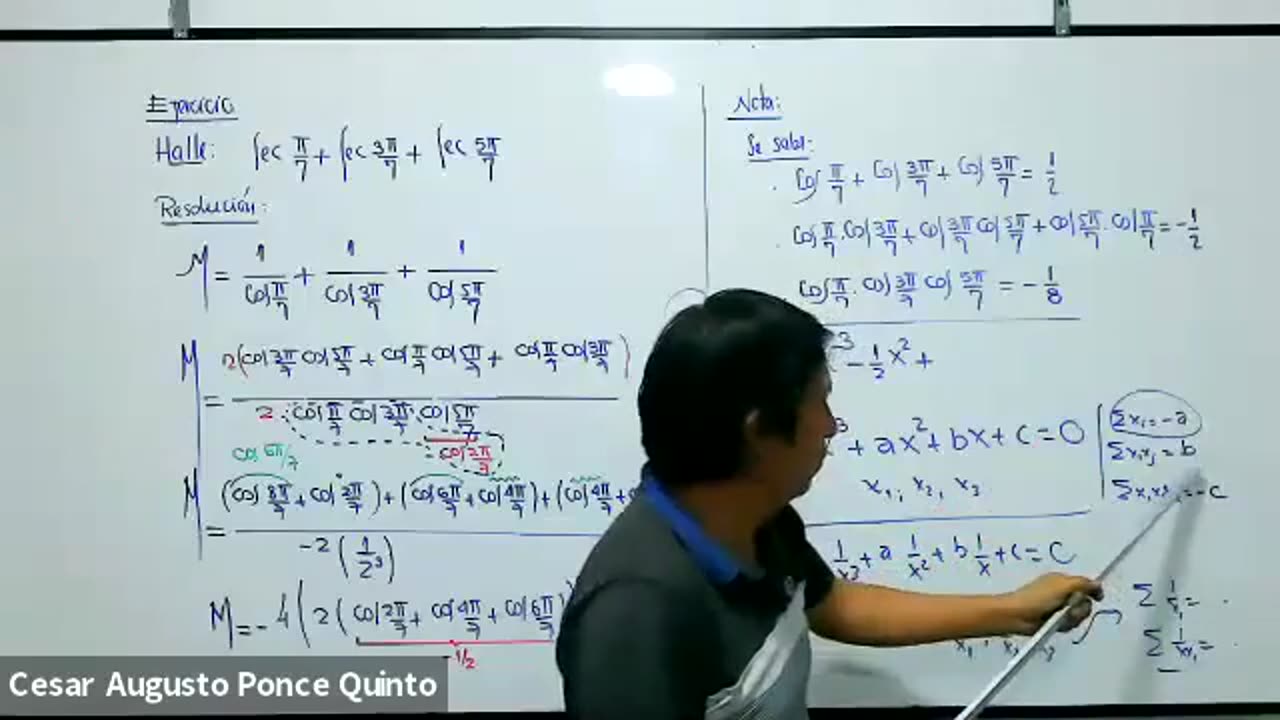 Ejercicio
Halle: Sec π/7 + Sec 3π/7 + Sec 5π/7
Resolución:
M = 1/Cos π/7 + 1/Cos 3π/7 + 1/Cos 5π/7
M = 2(Cos 3π/7 Cos 5π/7 + Cos π/7 Cos 5π/7 + Cos π/7 Cos 3π/7)
2 · Cos π/7 Cos 3π/7 · Cos 5π/7
Cos 6π/7
M = (Cos 8π/7 + Cos 2π/7) + (Cos 6π/7 + Cos 4π/7) + (Cos 4π/7 +
-2 (1/2³)
M = -4(2(Cos 2π/7 + Cos 4π/7 + Cos 6π/7
-1/2
Nota:
Se sabe:
· Cos π/7 + Cos 3π/7 + Cos 5π/7 = 1/2
· Cos π/7 · Cos 3π/7 + Cos 3π/7 Cos 5π/7 + Cos 5π/7 · Cos π/7 = -1/2
Cos π/7 · Cos 3π/7 Cos 5π/7 = -1/8
3 - 1/2 x² +
3 + ax² + bx + c = 0
x₁, x₂, x₃
Σxᵢ = -a
Σxᵢxⱼ = b
= -c
1/x³ + a 1/x² + b 1/x + c = C
Cesar Augusto Ponce Quinto